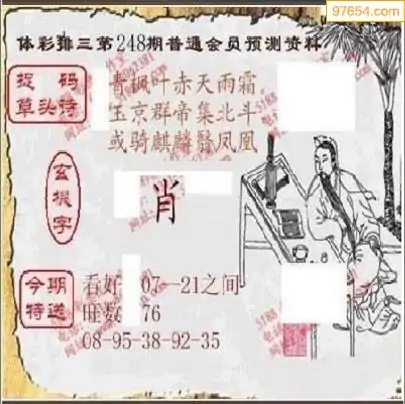 97654.com
体彩排三第248期普通会员预测资料
捉码
草头诗
青枫叶赤天雨霜
玉京群帝集北斗
或骑麒麟翳凤凰
玄机字
肖
今期
特送
看好 07--21之间
旺数 76
08-95-38-92-35